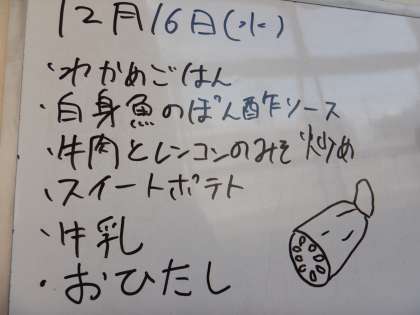 12月16日(水)
・わかめごはん
・白身魚のぽん酢ソース
・牛肉とレンコンのみそ炒め
・スイートポテト
・牛乳
・おひたし